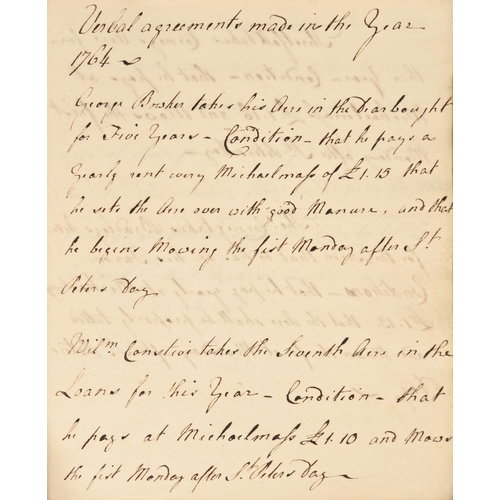 Verbal agreements made in the Year
1764
George Broker takes his Acre in the Dearbought
for Five Years – Condition – that he pays a
Yearly rent every Michaelmass of £1.15 that
he sets the Acre over with good Manure, and that
he begins Mowing the fist Monday after St.
Peters Day
Wilm. Constive takes the Seventh Acre in the
Loans for this Year – Condition – that
he pays at Michaelmass £1.10 and Mows
the fist Monday after St. Peters Day –